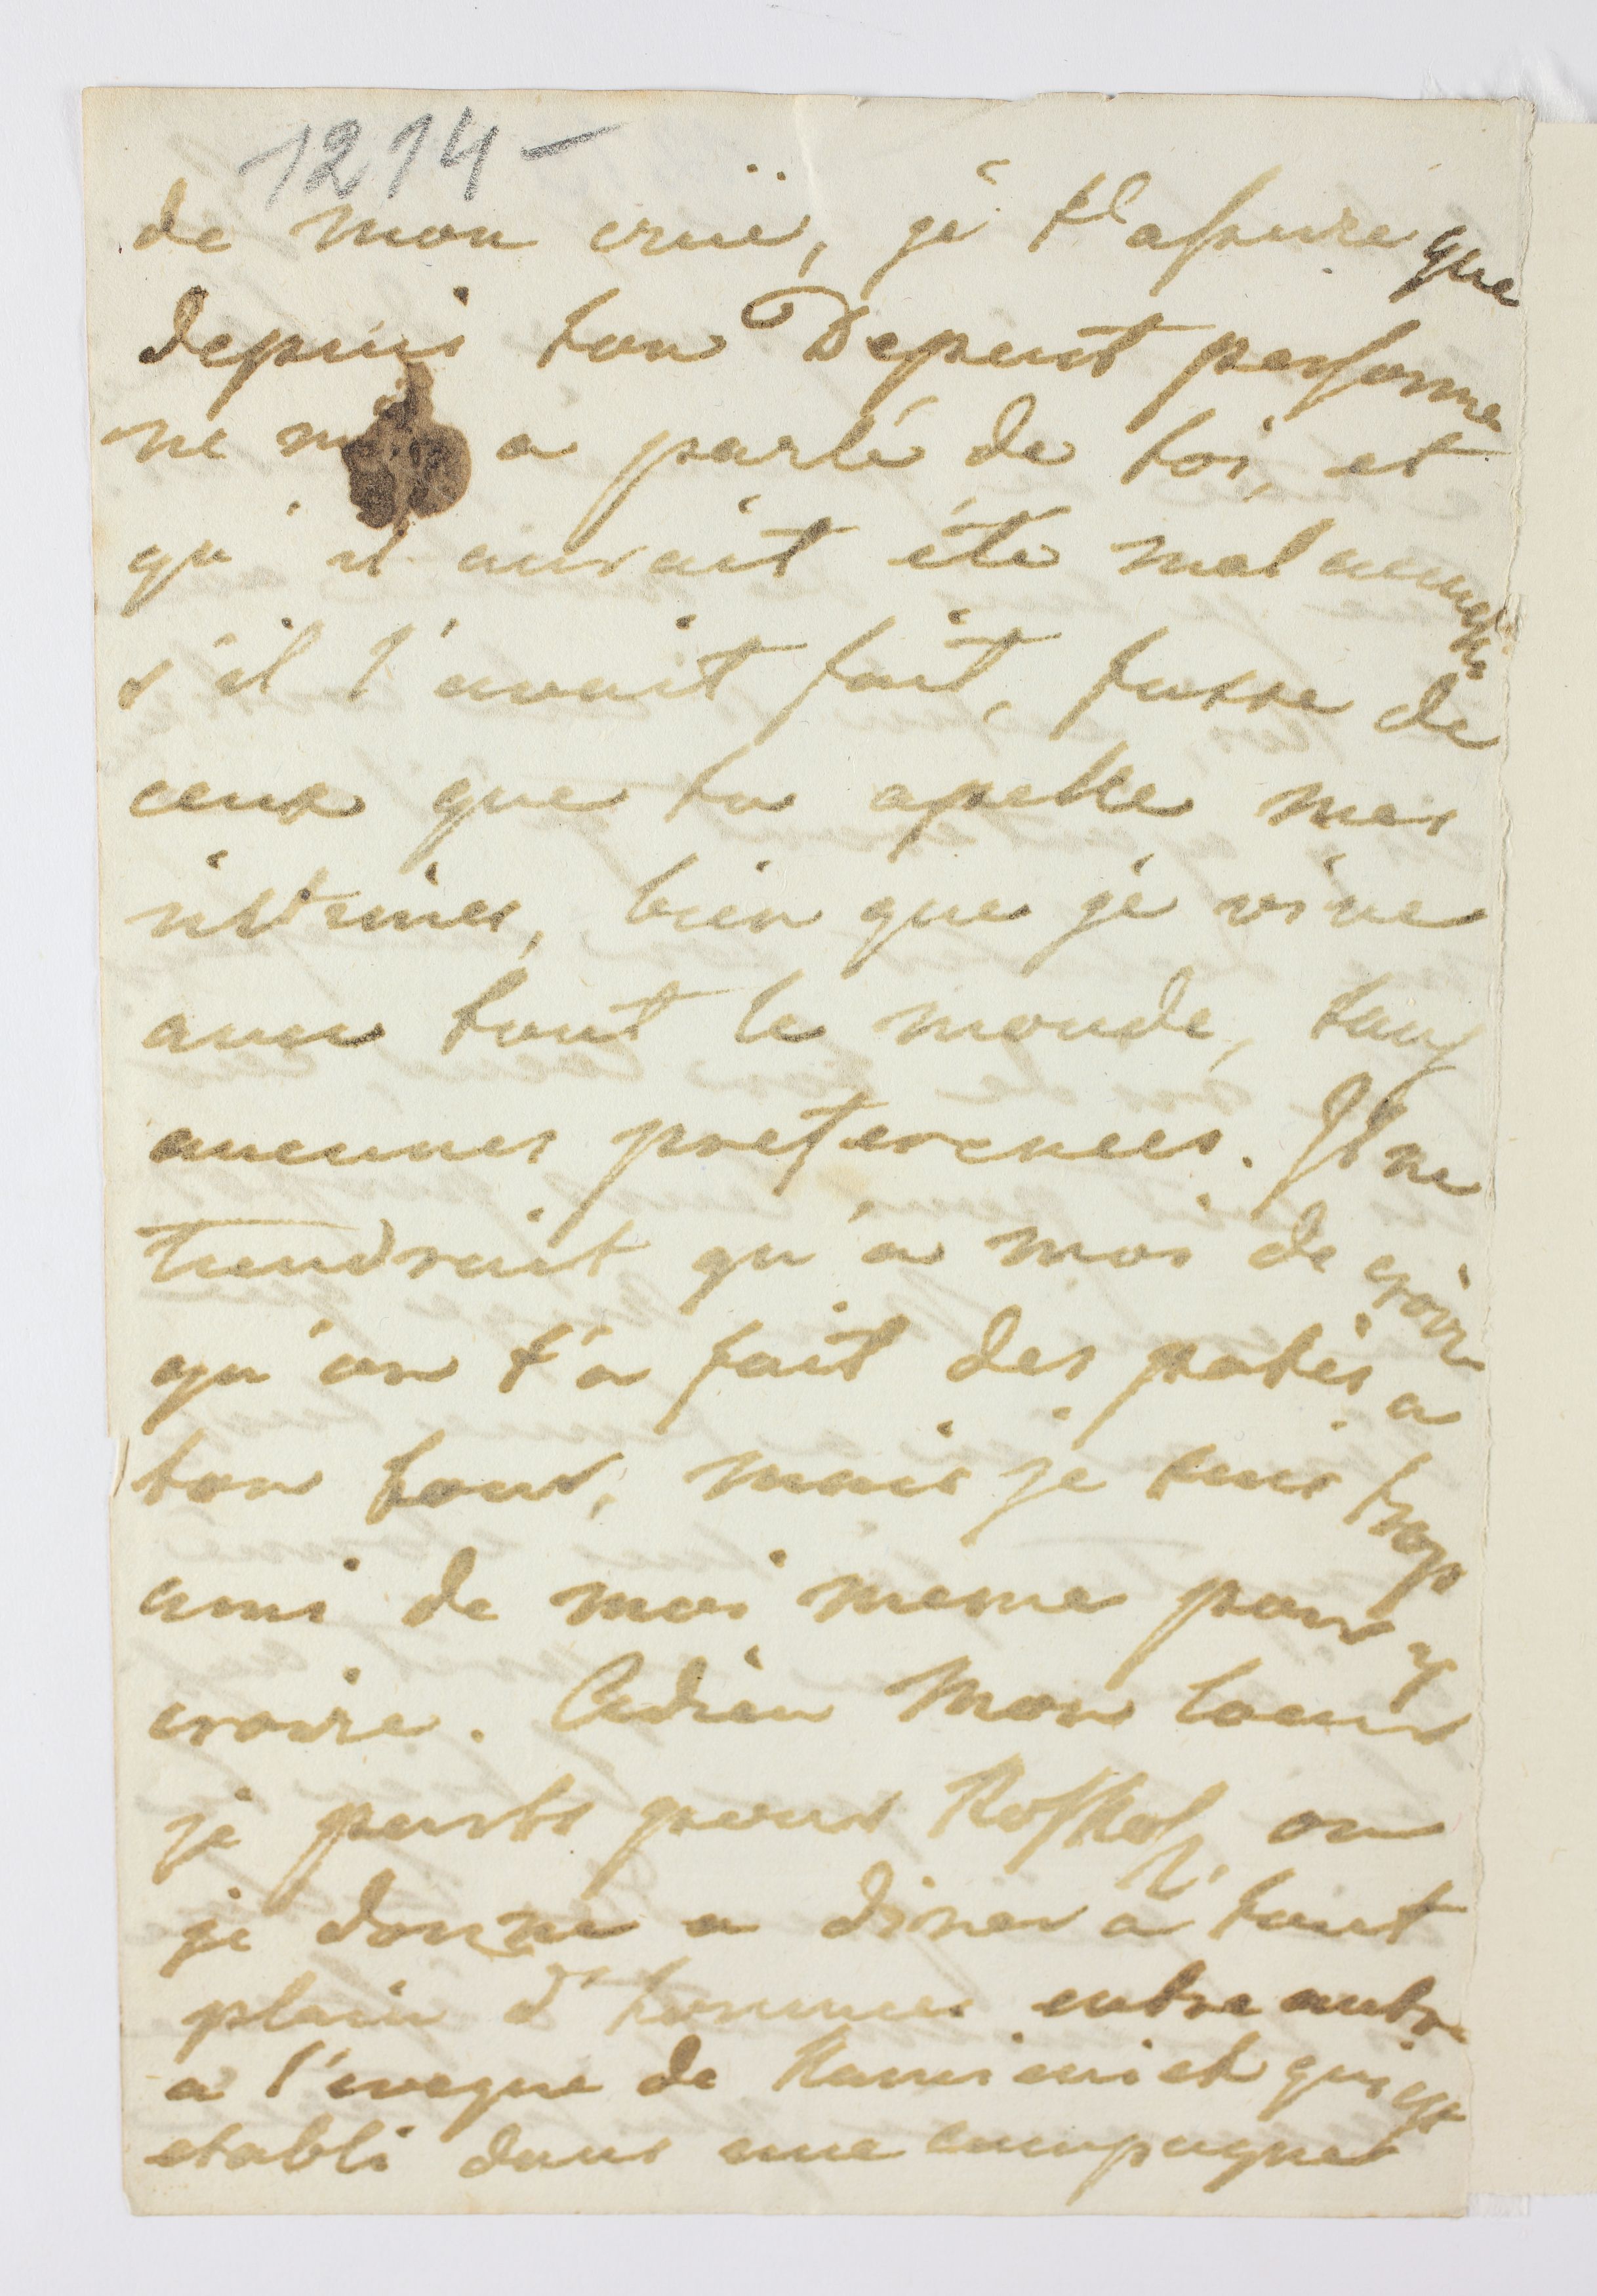 1214 —
de mon crüe, je t'assure que
depuis ton Depart personne
ne m'a parlé de toi, et
qu'il aurait été mal
s'il l'avait fait, fusse de
ceux que tu apelle mes
intimes, bien que je vive
avec tout le monde, sans
aucunes preferences. Il ne
tiendrait qu'a moi de croire
qu'on t'a fait des patés a
ton tour, mais je suis trop
ami de moi meme pour y
croire. Adieu mon coeur
je parts pour ou
je donne a diner a tout
plain d'hommes entre autre
a l'eveque de Kamieniek qui est
etabli dans une campagne